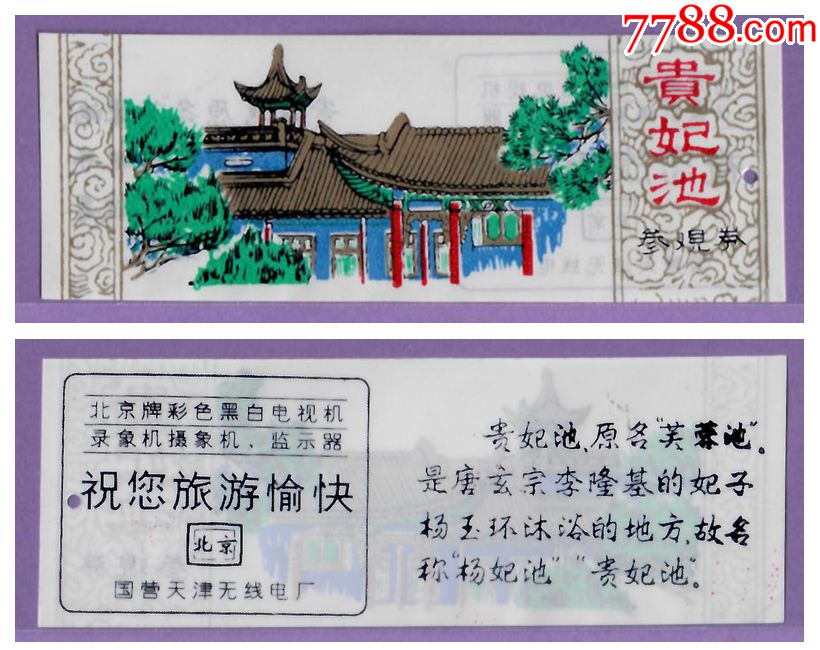 7788.com
貴妃池
参观券
北京牌彩色黑白电视机
录象机摄象机、监示器
祝您旅游愉快
北京
国营天津无线电厂
贵妃池、原名“芙蓉池”。
是唐玄宗李隆基的妃子
杨玉环沐浴的地方，故名
称“杨妃池”“贵妃池”。